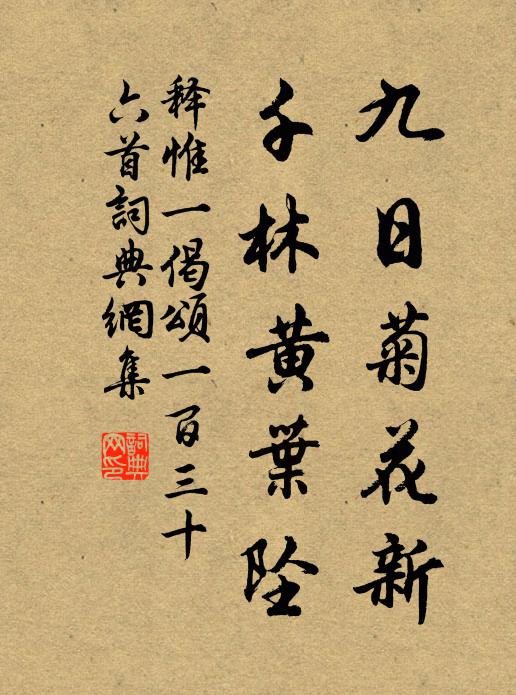 九日菊花新
千林黄葉坠
释惟一偈頌一百三十
六首詞典網集
詞典
网印